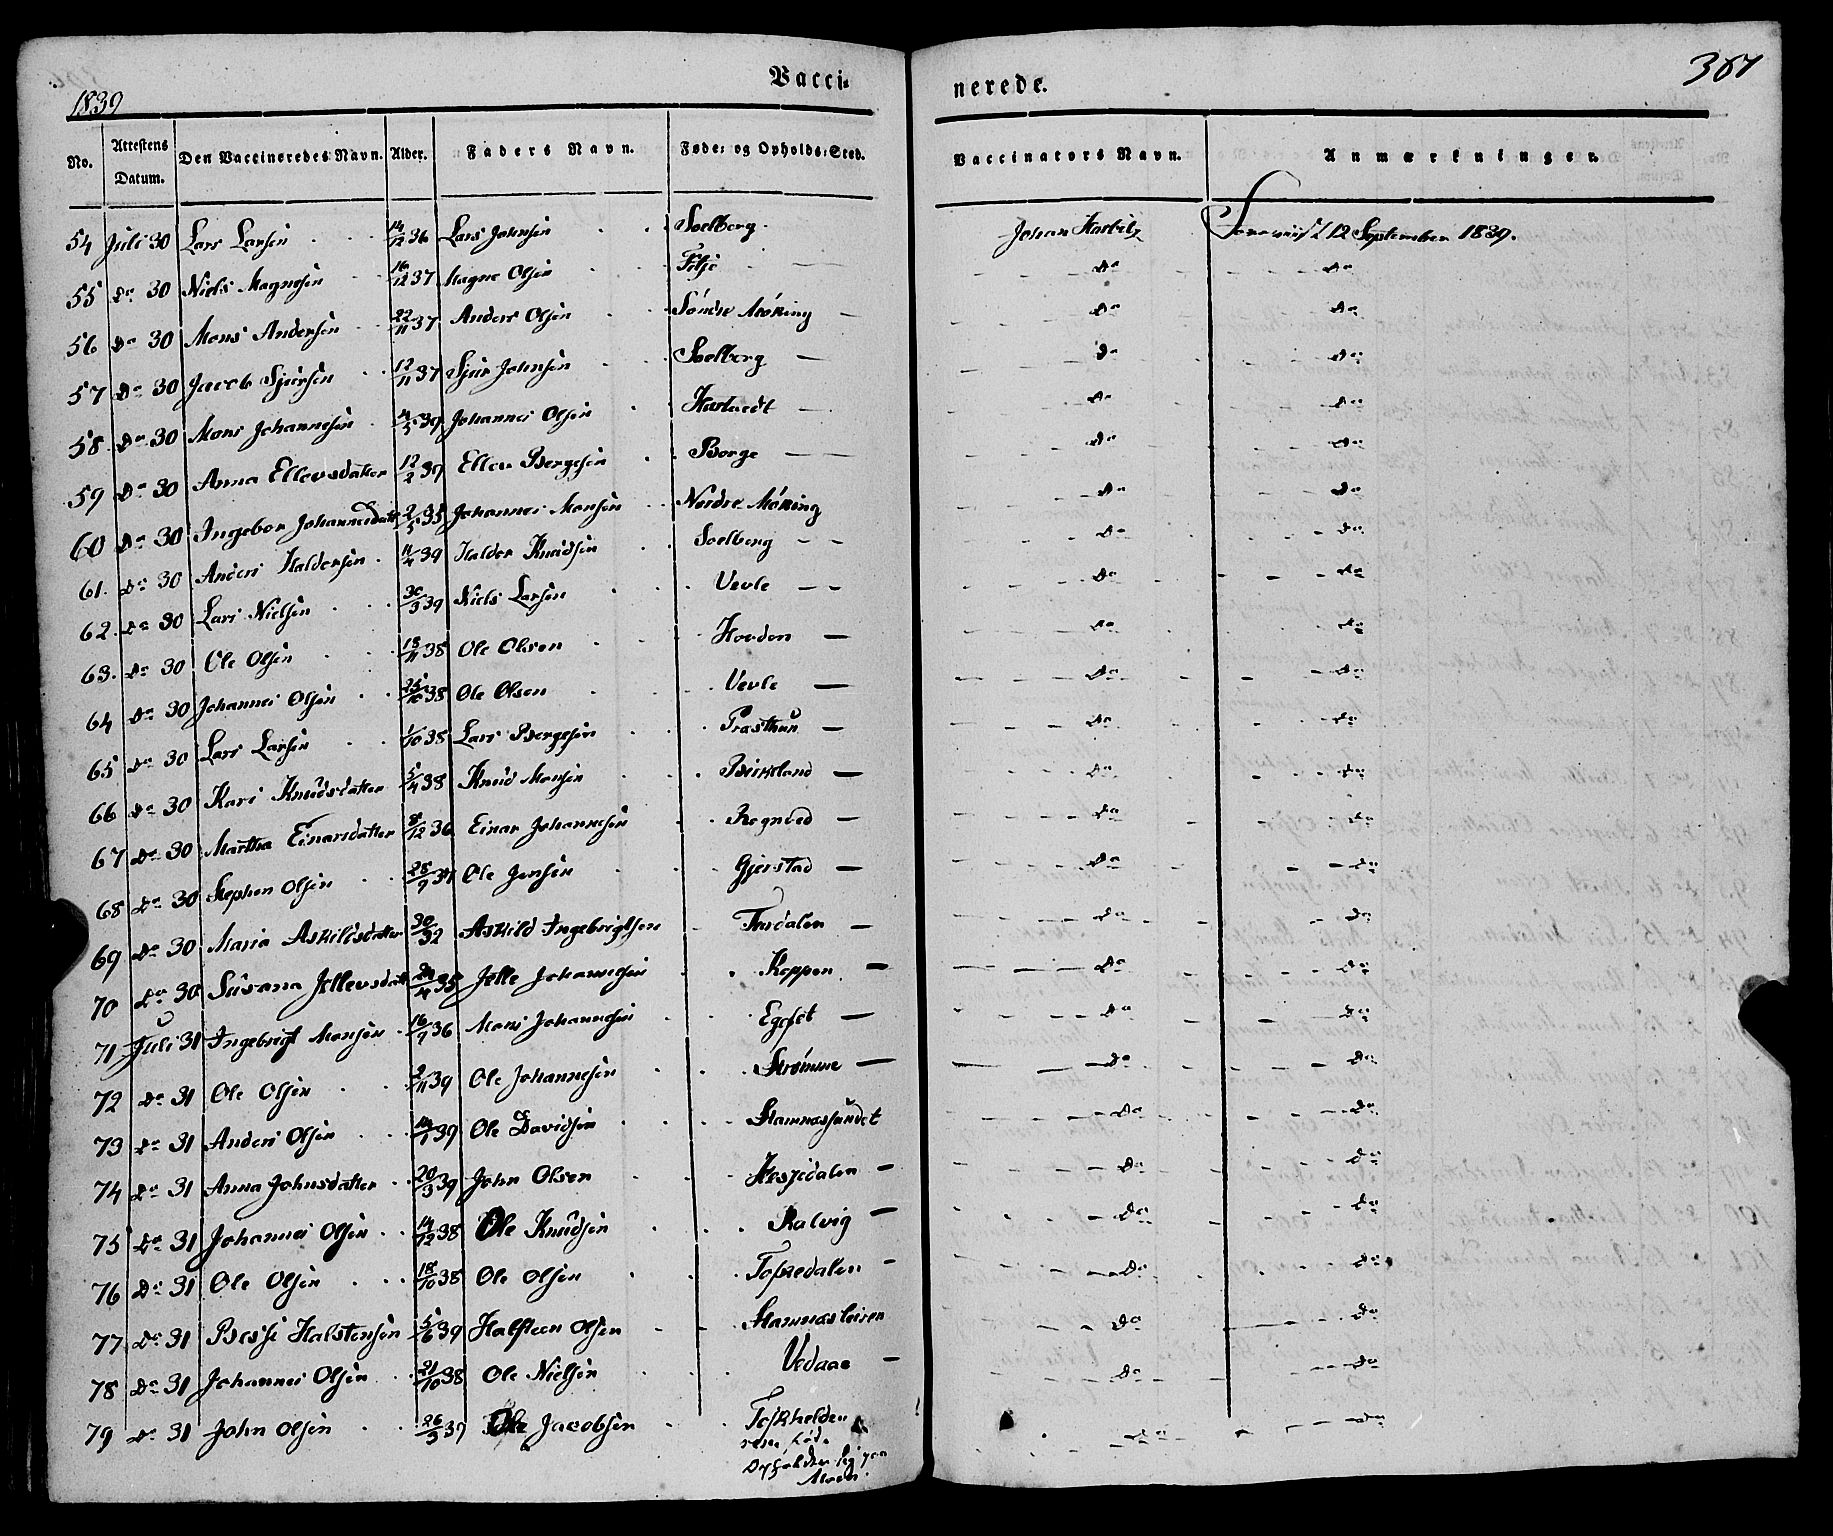 1839 Vacci- nerede. 387
No. Attestens Datum. Den Vaccineredes Navn. Alder. Faders Navn. Føde- og Opholds-Sted. Vaccinators Navn. Anmærkninger.
54 Juli 30 Lars Larsen 14/12 36 Lars Johnsen Soelberg Johan 12 September 1839.
55 Do 30 Niels Magnesen 16/12 37 Magne Olsen Filje Do Do
56 Do 30 Mons Andersen 22/11 37 Anders Olsen Søndre Møking Do Do
57 Do 30 Jacob Sjursen 12/11 37 Sjur Johnsen Soelberg Do Do
58 Do 30 Mons Johannesen 4/5 39 Johannes Olsen Do Do
59 Do 30 Anna Ellevsdatter 12/2 39 Ellev Bergesen Borge Do Do
60 Do 30 Ingebor Johannesdatt 2/5 35 Johannes Monsen Nordre Møking Do Do
61. Do 30 Anders Haldorsen 11/4 39 Haldor Knudsen Soelberg Do Do
62. Do 30 Lars Nielsen 30/3 39 Niels Larsen Vevle Do Do
63. Do 30 Ole Olsen 18/11 38 Ole Olsen Hovden Do Do
64 Do 30 Johannes Olsen 25/10 38 Ole Olsen Vevle Do Do
65 Do 30 Lars Larsen 1/10 38 Lars Bergesen Prasthun Do Do
66 Do 30 Kari Knudsdatter 5/4 38 Knud Monsen Birkeland Do Do
67 Do 30 Martha Einarsdatter 8/12 36 Einar Johannesen Rognved Do Do
68 Do 30 Stephen Olsen 28/9 37 Ole Jensen Gjerstad Do Do
69 Do 30 Maria Askildsdatter 30/ 32 Askild Ingebrigtsen Do Do
70 Do 30 Susana Jellevsdatt /4 35 Jelle Johannesen Koppen Do Do
71 Juli 31 Ingebrigt Monsen 16/9 36 Mons Johannesen Do Do
72 Do 31 Ole Olsen 2/11 39 Ole Johannesen Strømme Do Do
73 Do 31 Anders Olsen 14/1 39 Ole Davidsen Stamnæssundet Do Do
74 Do 31 Anna Johnsdatter 20/3 39 John Olsen Hesjedalen Do Do
75 Do 31 Johannes Olsen 14/12 38 Ole Knudsen Kalvig Do Do
76 Do 31 Ole Olsen 18/10 38 Ole Olsen Fossedalen Do Do
77 Do 31 Bessi Halstensen 5/6 39 Halsteen Olsen Stamnæsleiren Do Do
78 Do 31 Johannes Olsen 21/10 38 Ole Nielsen Vedaae Do Do
79 Do 31 John Olsen 26/3 37 Ole Jacobsen Do Do